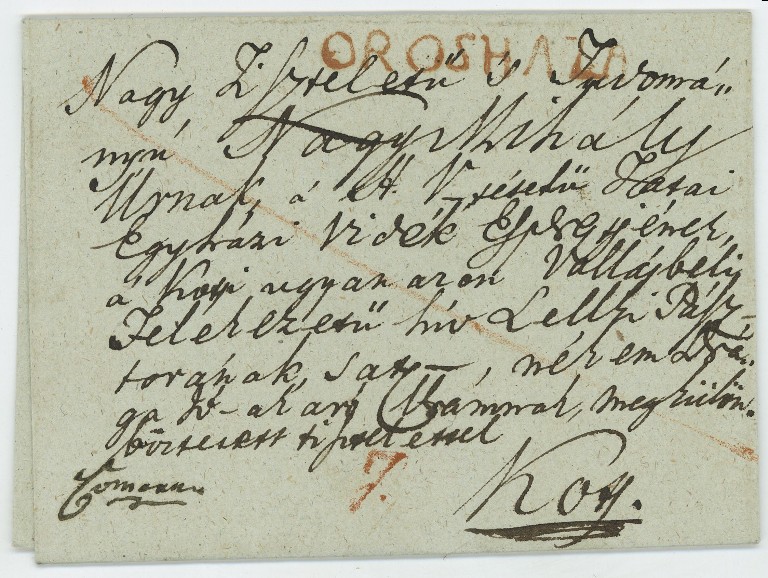 OROSHAZA
Nagy Tiszteletű s Tudomá„
nyú, Nagy Mihály
Úrnak, á H. V. tésétű Tatai
Egyházi Vidék Esperesjének,
á Kotsi ugyan azon Vallásbeli
Gelekezetű hív Lelki Pász–
torának, sat–, nékem Drá„
ga Uramnak, megkülön„
böztetett tisztelettel
7.
Kots.